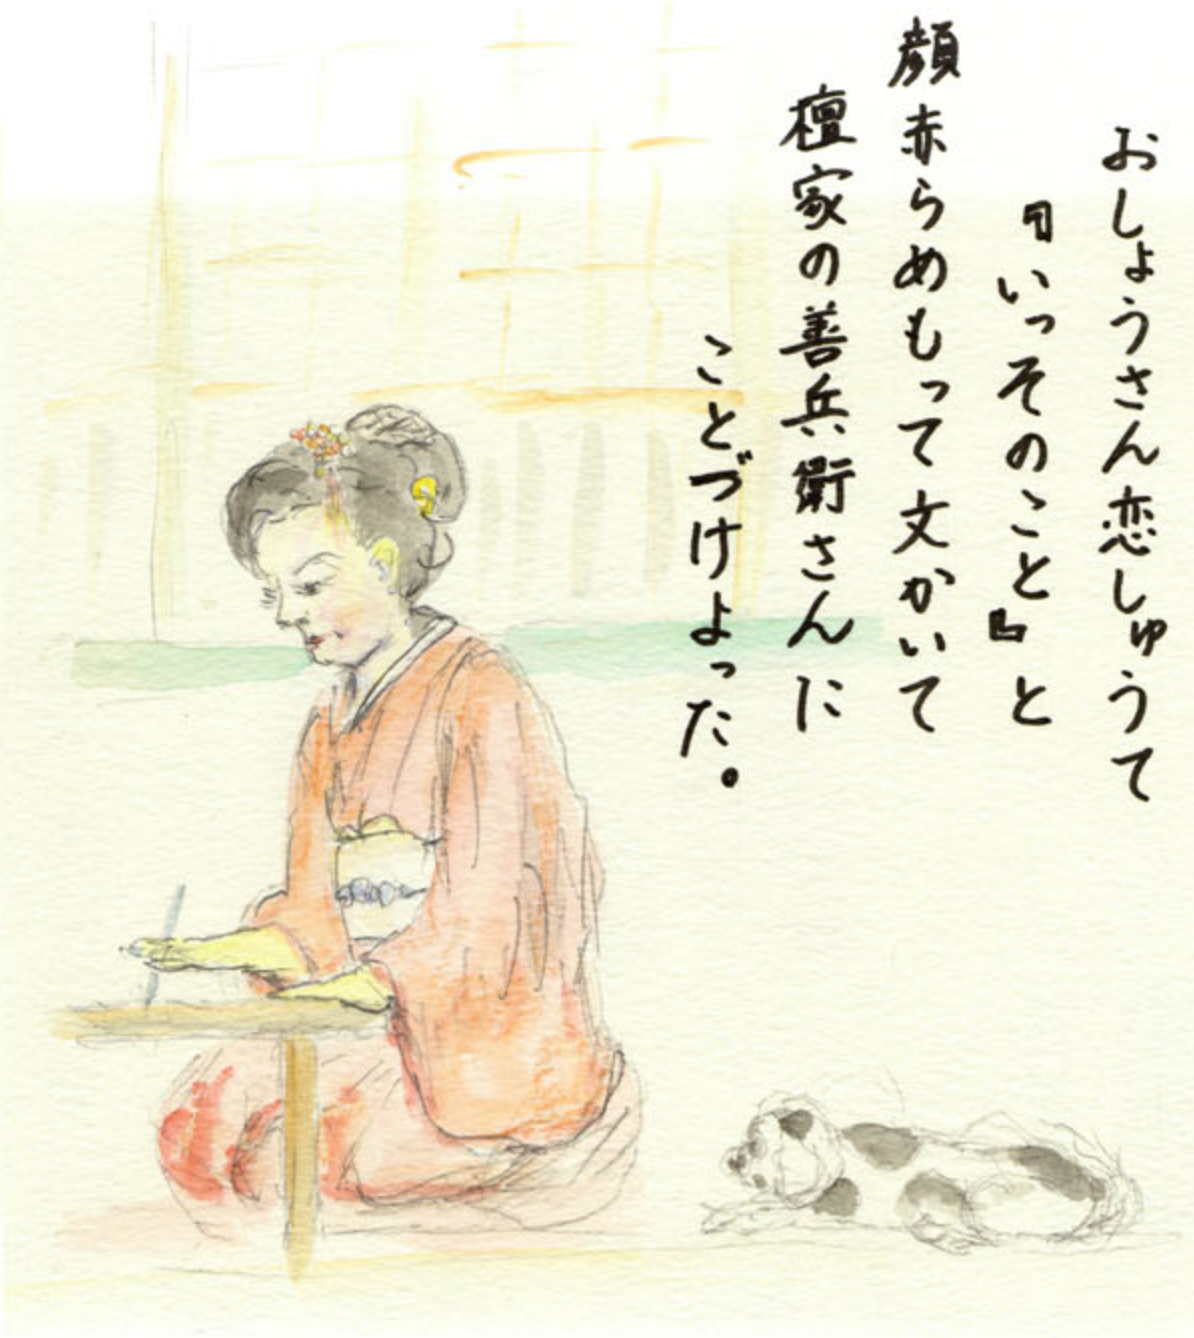 おしょうさん恋しゅうて
『いっそのこと』と
顔赤らめもって文かいて
檀家の善兵衛さんに
ことづけよった。